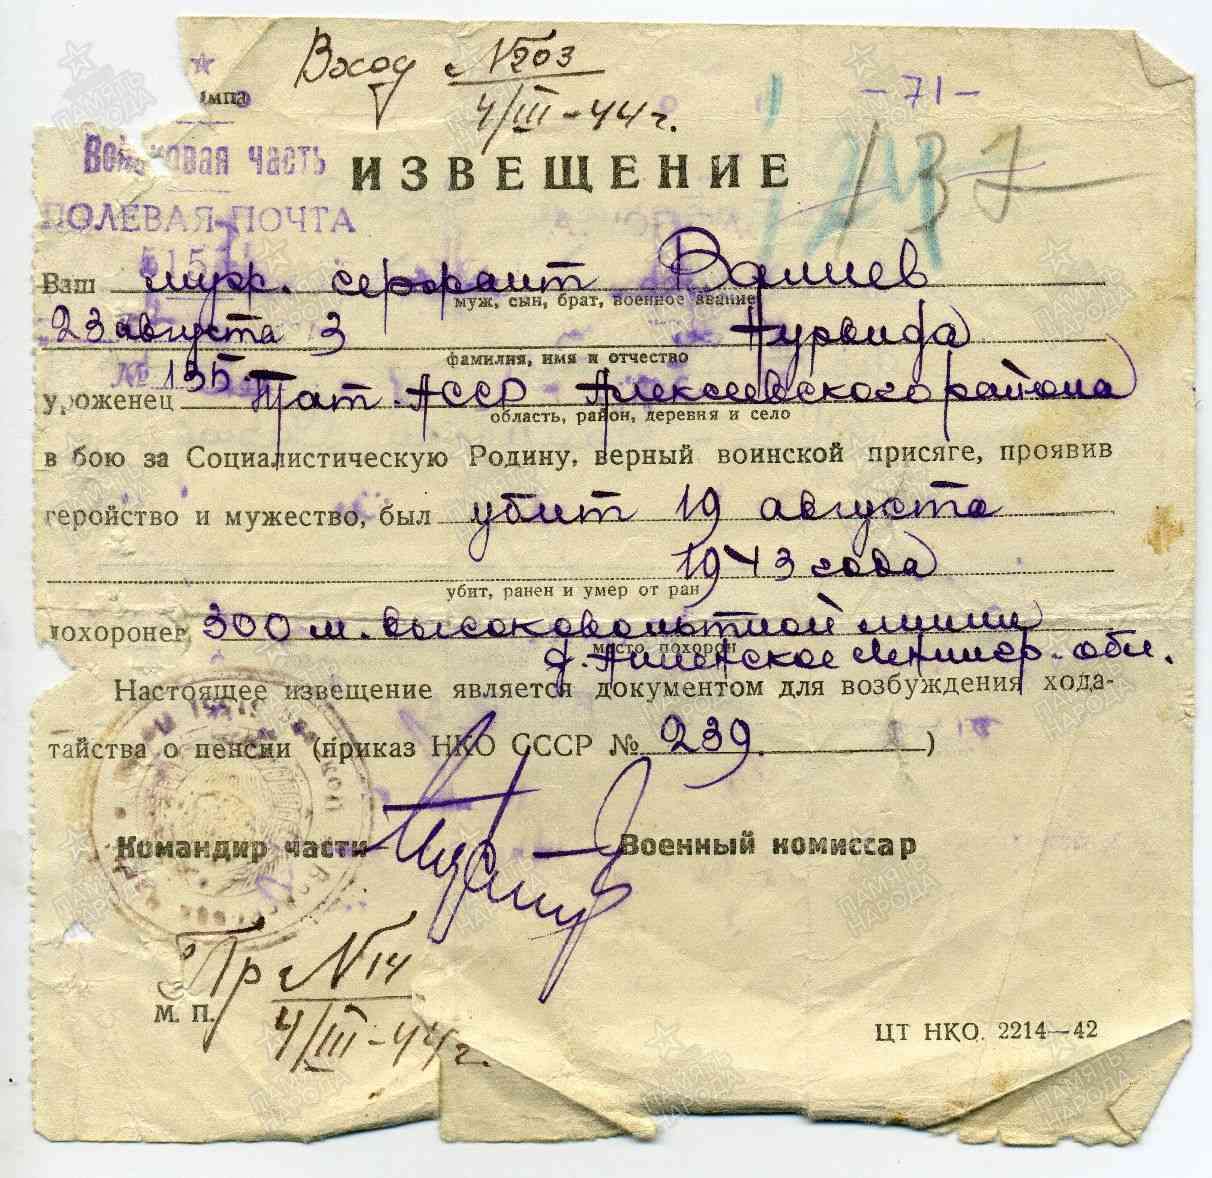 Вход №203
4/III-44г.
-71-
137
Войсковая часть
ИЗВЕЩЕНИЕ
ПОЛЕВАЯ ПОЧТА
Ваш муж. сержант Валиев
муж, сын, брат, военное звание
23 августа 3 Нурвида
фамилия, имя и отчество
№ 155
уроженец Тат. АССР Алексеевского района
область, район, деревня и село
в бою за Социалистическую Родину, верный воинской присяге, проявив
геройство и мужество, был убит 19 августа
1943 года
убит, ранен и умер от ран
похоронен 300 м. высоковольтной линии
место похорон
д. Анненское Ленингр. обл.
Настоящее извещение является документом для возбуждения хода-
тайства о пенсии (приказ НКО СССР № 239. )
Командир части Военный комиссар
Пр №14
М. П.
4/III-44г.
ЦТ НКО. 2214—42
ПАМЯТЬ НАРОДА